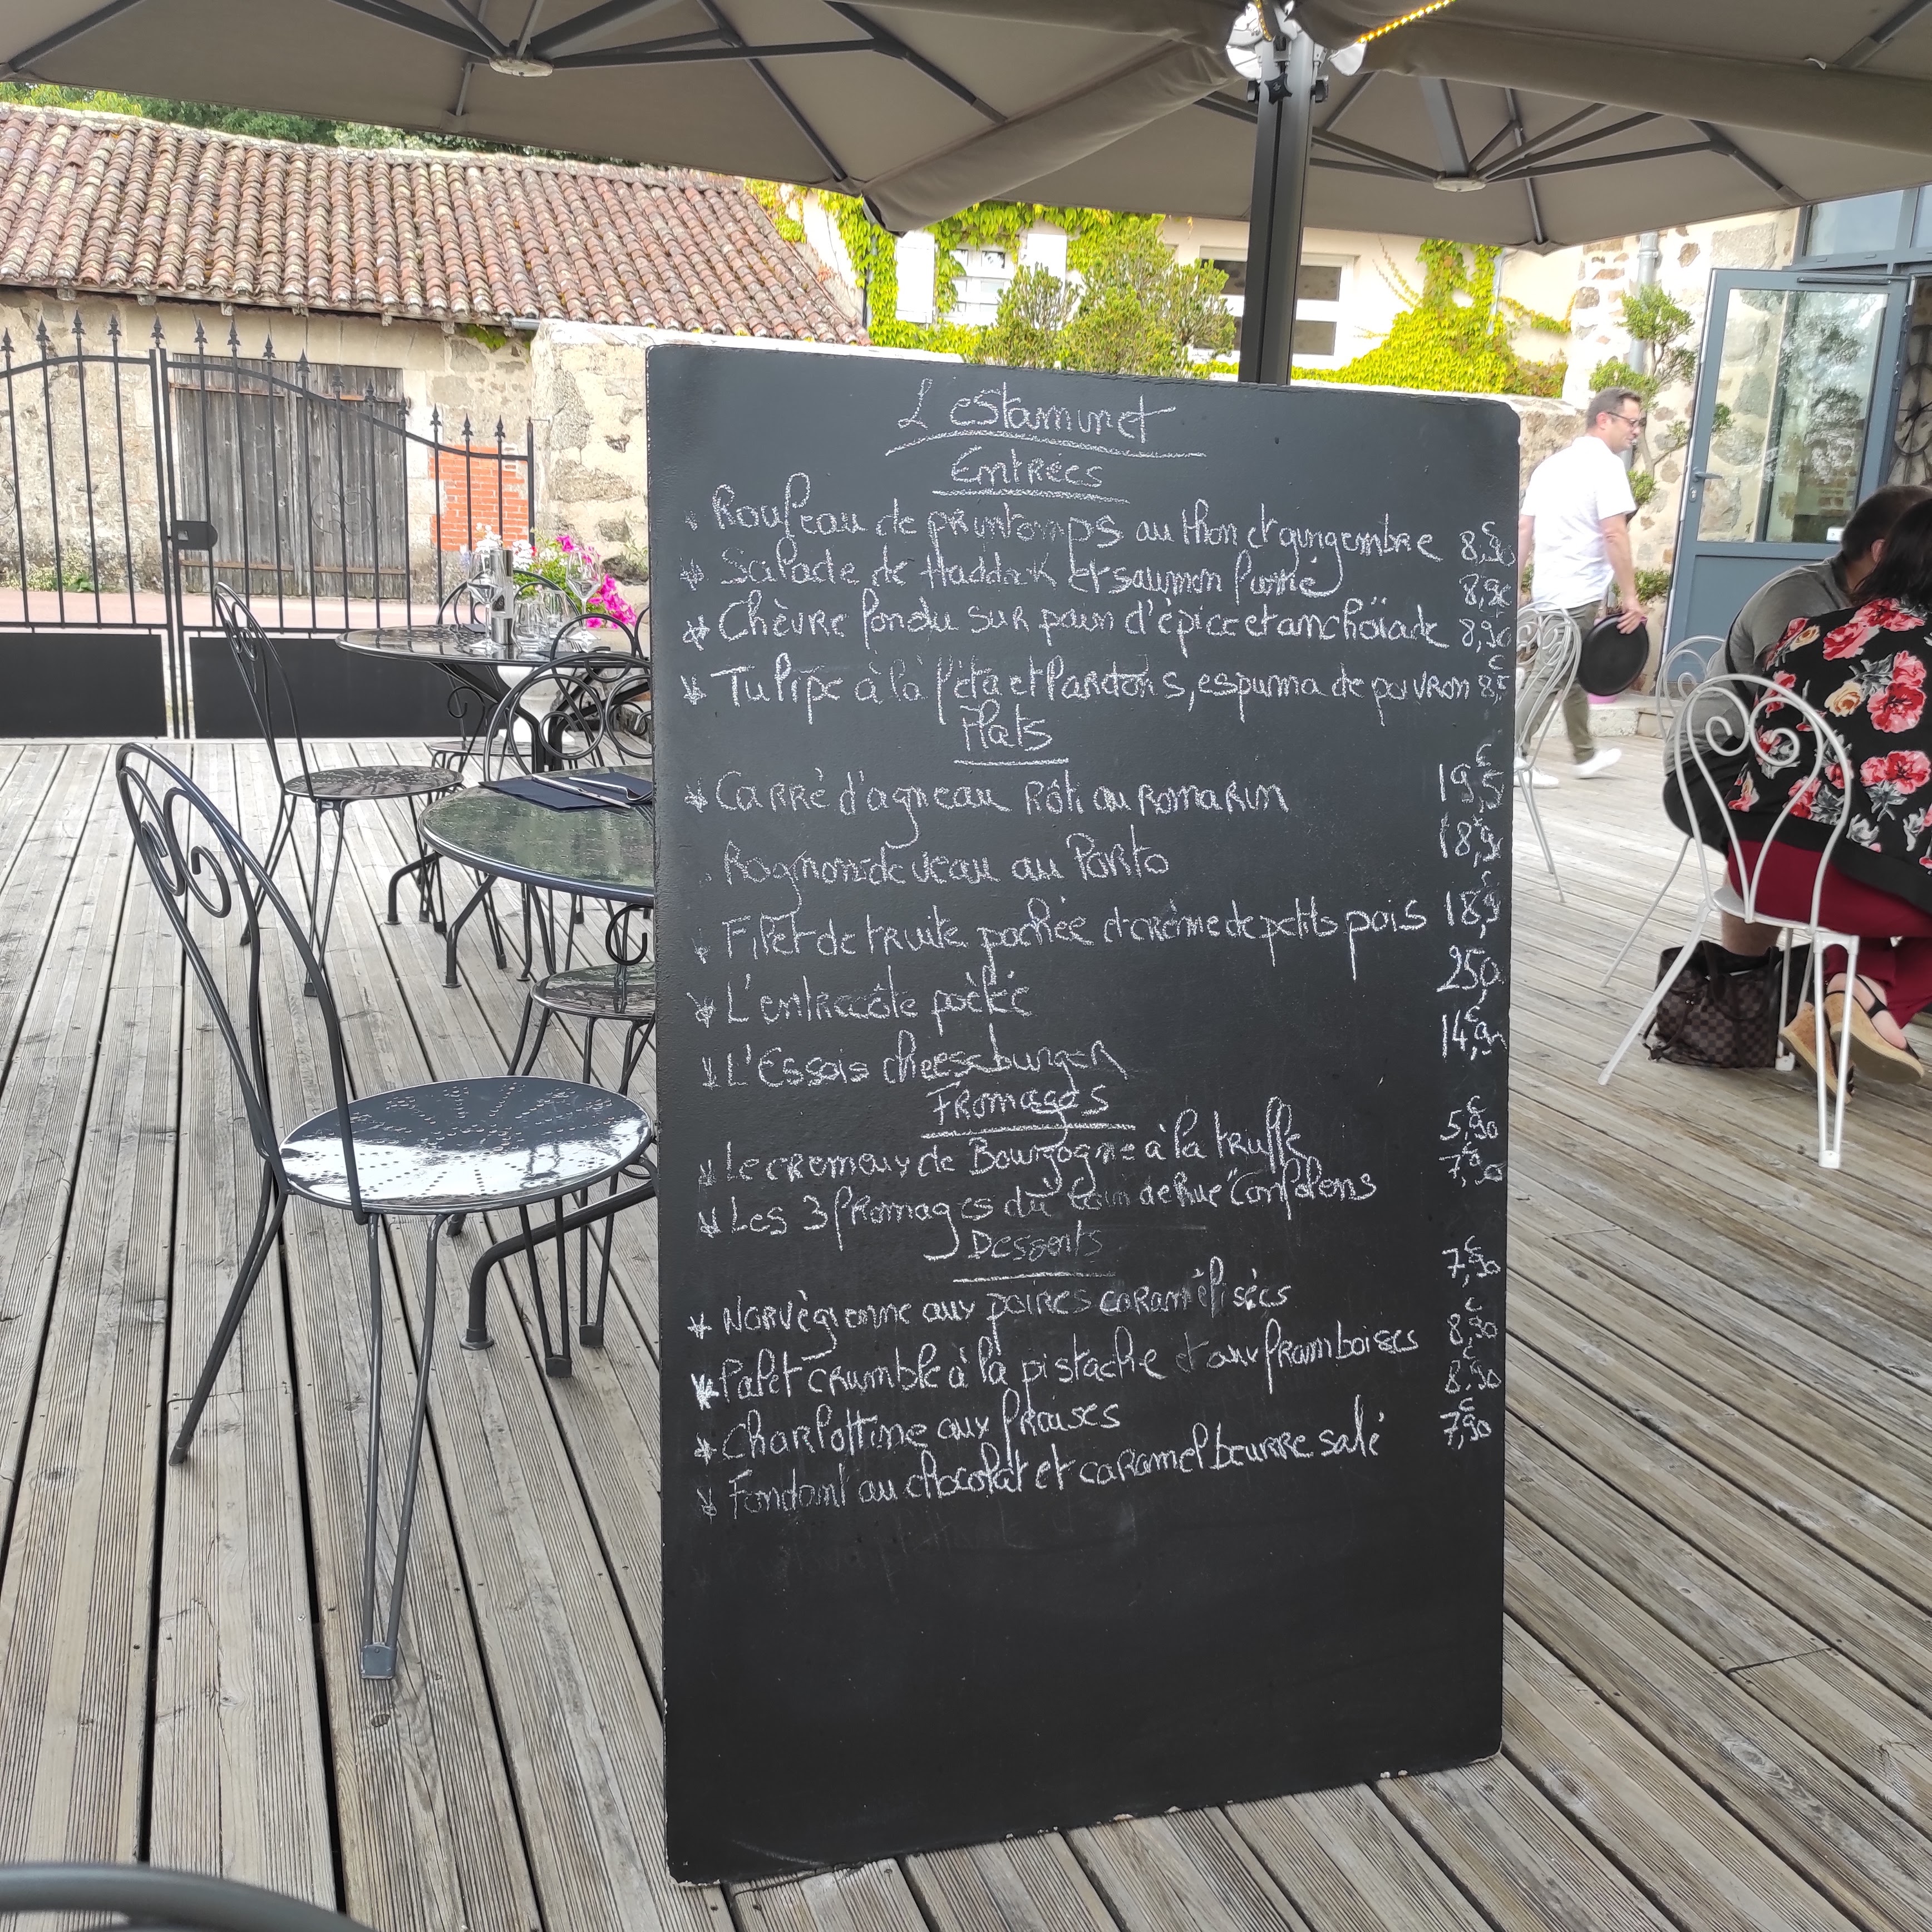 L'estaminet
Entrées
* Rouleau de printemps au thon et gingembre 8,90€
* Salade de Haddock et saumon fumé 8,90
* Chèvre fondu sur pain d'épice et anchoïade 8,90
* Tulipe à la féta et lardons, espuma de poivron 8,5€
Plats
* Carré d'agneau Rôti au Romarin 19,5€
Rognon de veau au Porto 18,9€
* Filet de truite pochée et crème de petits pois 18,9€
* L'entrecôte poêlée 25,0
* L'Essais cheeseburger 14,90€
Fromages
* Le crémeux de Bourgogne à la truffe 5,90€
* Les 3 fromages du "Coin de Rue" Confolens 7,90
Desserts
* Norvègienne aux poires caramélisées 7,90€
* Palet crumble à la pistache et aux framboises 8,90€
* Charlottine aux fraises 8,90€
* Fondant au chocolat et caramel beurre salé 7,90€